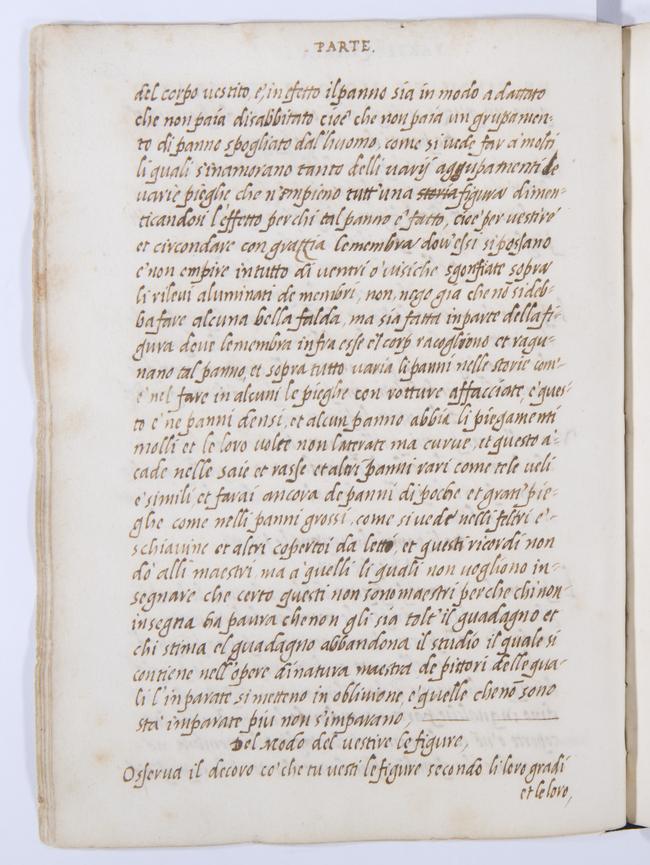 PARTE.
del corpo vestito, e, in efetto il panno sia in modo adattato
che non paia disabbitato cioe che non paia un grupamen-
to di panno spogliato dal'huomo, come si vede far a molti
li quali s'inamorano tanto delli varij aggupamenti de
varie pieghe che n'empieno tutt'una storia figura dimen-
ticandosi l'effetto perchi tal panno e' fatto, cioe per vestire
et circondare con grattia le membra dov'essi si posano
e non empire in tutto di ventri o' visiche sgonfiate sopra
li rilevi aluminati de membri, non, nego gia che nō si deb-
ba fare alcuna bella falda, ma sia fatta in parte della fi-
gura dove le membra infra esse e'l corp racogliono et ragu-
nano tal panno, et sopra tutto varia li panni nelle storie com-
e' nel fare in alcuni le pieghe con rotture affacciate, e ques-
to e' ne panni densi, et alcun panno abbia li piegamenti
molli et le loro volte non laterate ma curve, et questo a-
cade nelle saie et rasse et altri panni rari come tele veli
e simili, et farai ancora de panni di poche et gran' pie-
ghe come nelli panni grossi, come si vede nelli feltri e'
schiavine et altri copertoi da letto, et questi ricordi non
do' alli maestri, ma a' quelli li quali non vogliono in-
segnare che certo questi non sono maestri perche chi non
insegna ha paura che non gli sia tolt'il guadagno et
chi stima el guadagno abbandona il studio il quale si
contiene nell'opere di natura maestra de pittori delle qua-
li l'inparate si metteno in oblivione, e quelle che nō sono
sta' imparate piu non s'imparano,
Del Modo del vestire le figure,
Osserva il decoro co' che tu vesti le figure secondo li loro gradi
et le loro,